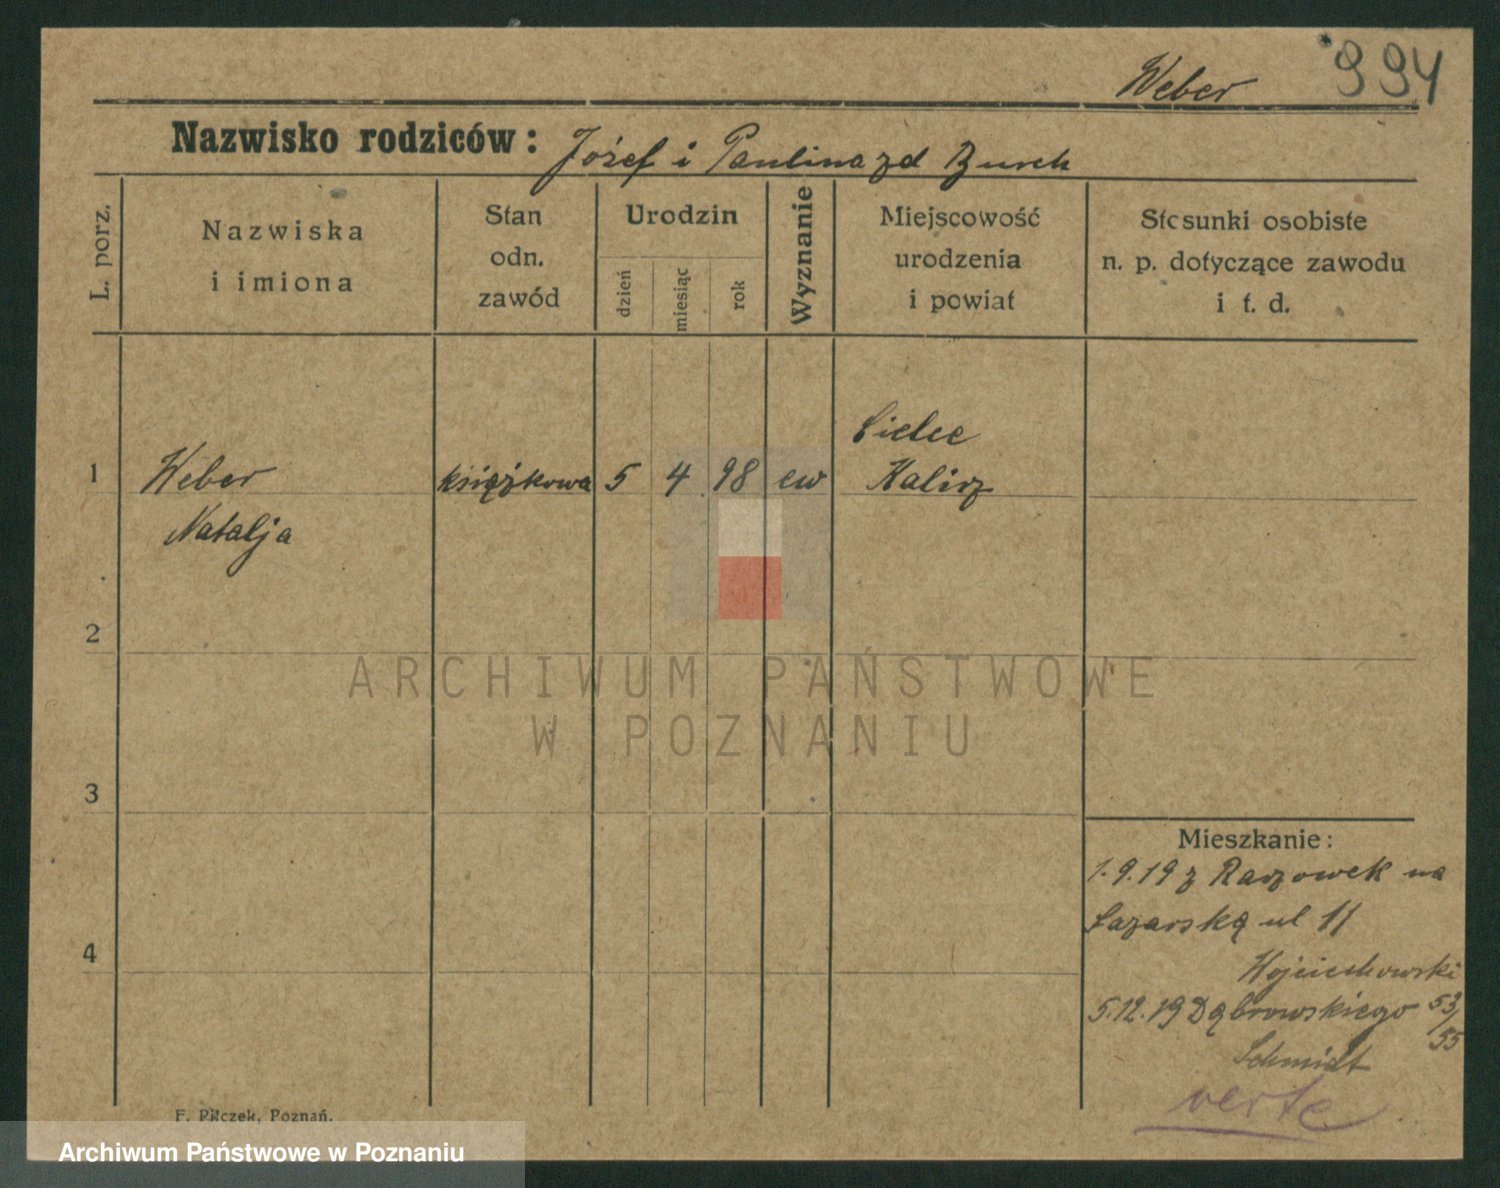 Weber 994
Nazwisko rodziców: Józef i Paulina zd Bursch
L. porz.
Nazwiska
i imiona
Stan
odn.
zawód
Urodzin
dzień
miesiąc
rok
Wyznanie
Miejscowość
urodzenia
i powiat
Stosunki osobiste
n. p. dotyczące zawodu
i t. d.
1 Weber książkowa 5 4 98 ew
Natalja
Kalisz
2
3
4
ARCHIWUM PAŃSTWOWE
W POZNANIU
Mieszkanie:
1.9.19 z Raszowek na
Łazarską ul 11
Wojciechowski
5.12.19 Dąbrowskiego 53/55
Schmidt
verte
F. Pilczek, Poznań.
Archiwum Państwowe w Poznaniu